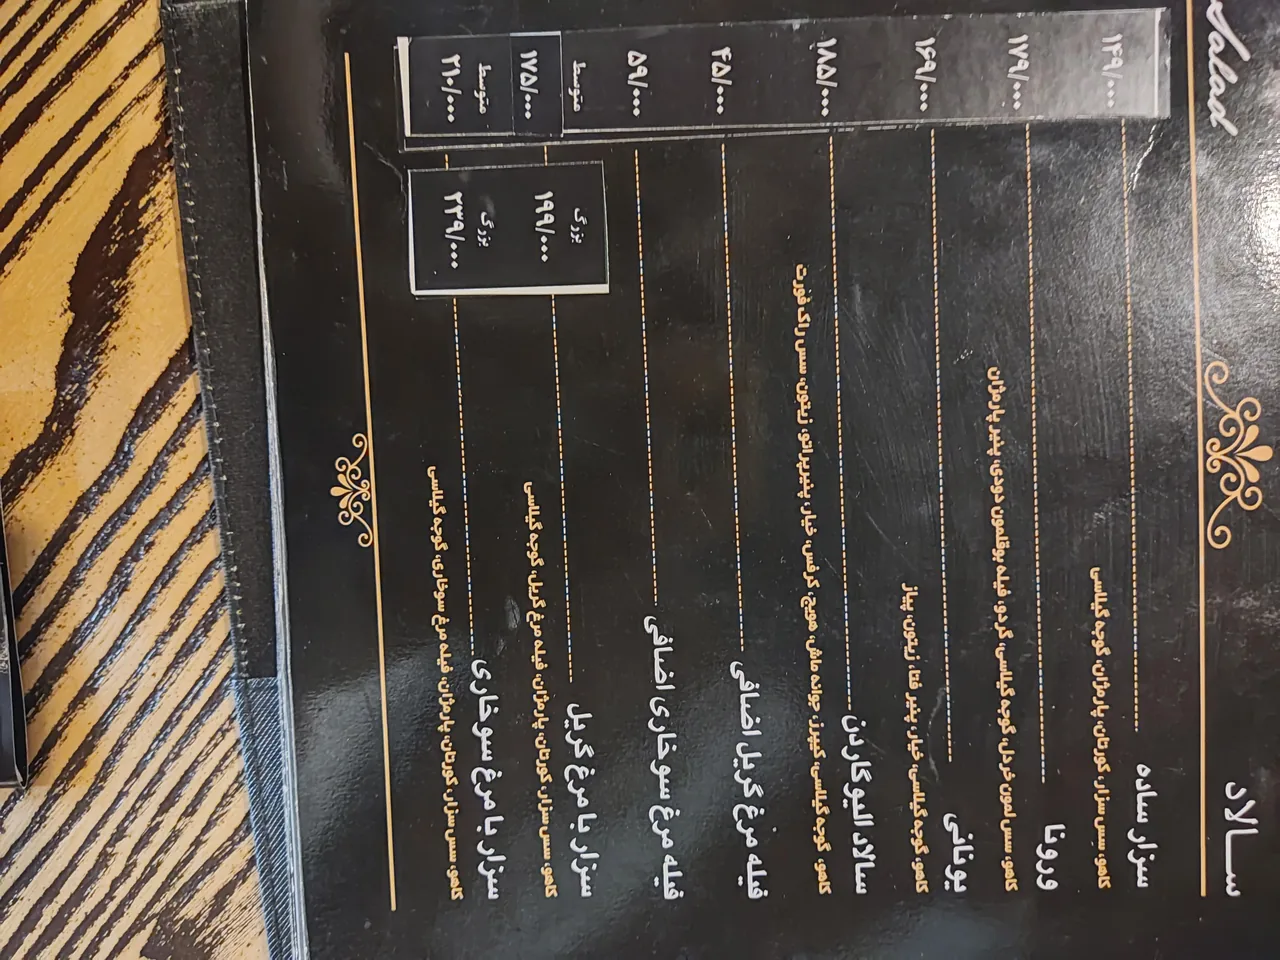 سالاد Salad
سزار ساده ۱۴۹/۰۰۰
کاهو، سس سزار، کورتان، پارمژان، گوجه گیلاسی
ورونا ۱۷۹/۰۰۰
کاهو، سس لمون خردل، گوجه گیلاسی، گردو، فیله بوقلمون دودی، پنیر پارمژان
یونانی ۱۶۹/۰۰۰
کاهو، گوجه گیلاسی، خیار، پنیر فتا، زیتون، پیاز
سالاد الیوگاردن ۱۸۵/۰۰۰
کاهو، گوجه گیلاسی، کینزر، جوانه ماش، هویج، کرفس، خیار، پنیر پرلمو، زیتون، سس راگ فورت
فیله مرغ گریل اضافی ۴۵/۰۰۰
فیله مرغ سوخاری اضافی ۵۹/۰۰۰
بزرگ متوسط
سزار با مرغ گریل ۱۹۹/۰۰۰ ۱۷۵/۰۰۰
کاهو، سس سزار، کورتان، پارمژان، فیله مرغ گریل، گوجه گیلاسی
بزرگ متوسط
سزار با مرغ سوخاری ۲۳۹/۰۰۰ ۲۱۰/۰۰۰
کاهو، سس سزار، کورتان، پارمژان، فیله مرغ سوخاری، گوجه گیلاسی